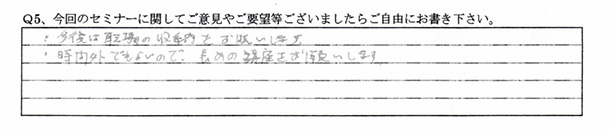 Q5、今回のセミナーに関してご意見やご要望等ございましたらご自由にお書き下さい。
・今後は職場の収納をお願いします
・時間外でもよいので、長めの講座をお願いします